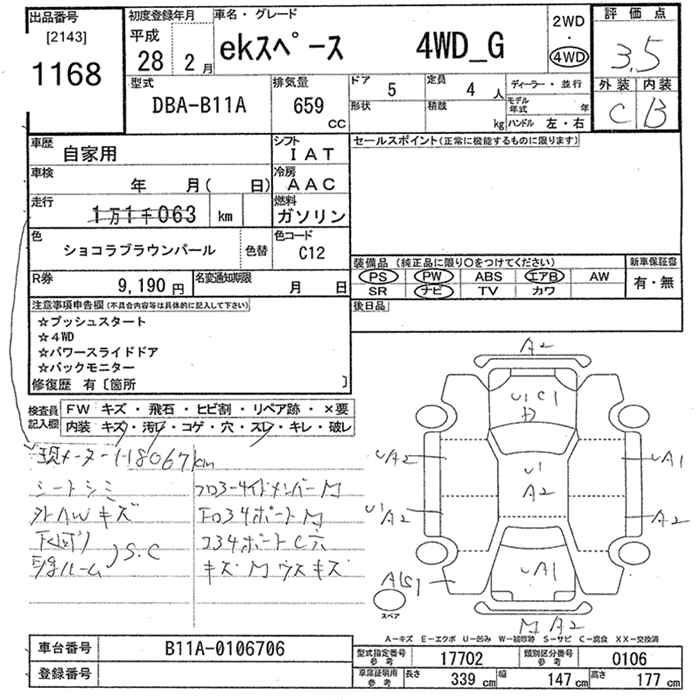 出品番号
[2143]
1168
初度登録年月
平成
28 2月
車名・グレード
ekスペース 4WD_G
2WD
・
4WD
評価点
3.5
外装 内装
C B
型式
DBA-B11A
排気量
659
CC
ドア
5
定員
4 人
形状
積載
kg
ディーラー・並行
モデル年式 年
ハンドル 左・右
車歴
自家用
シフト
IAT
セールスポイント(正常に機能するものに限ります)
車検
年 月( 日)
冷房
AAC
走行
1万1千063 km
燃料
ガソリン
色
ショコラブラウンパール
色替
色コード
C12
R券
9,190円
名変通知期限
月 日
装備品 (純正品に限り○をつけてください)
新車保証書
PS PW ABS エアB AW
有・無
SR ナビ TV カワ
後日品
注意事項申告欄(不具合内容等は具体的に記入して下さい)
☆プッシュスタート
☆4WD
☆パワースライドドア
☆バックモニター
修復歴 有〔箇所 〕
検査員記入欄
FW キズ・飛石・ヒビ割・リペア跡・×要
内装 キズ・汚レ・コゲ・穴・スレ・キレ・破レ
現メーター 118067km
シートシミ
外AWキズ
S.C
キズ M ウスキズ
A2
UC1
U1
A2
UA2
UA1
U1
A2
A2
UA1
M A2
スペア
A-キズ E-エクボ U-凹み W-補修跡 S-サビ C-腐食 XX-交換済
車台番号 B11A-0106706
登録番号
型式指定番号 参考 17702
類別区分番号 参考 0106
車庫証明用 参考
長さ 339 cm
幅 147 cm
高さ 177 cm